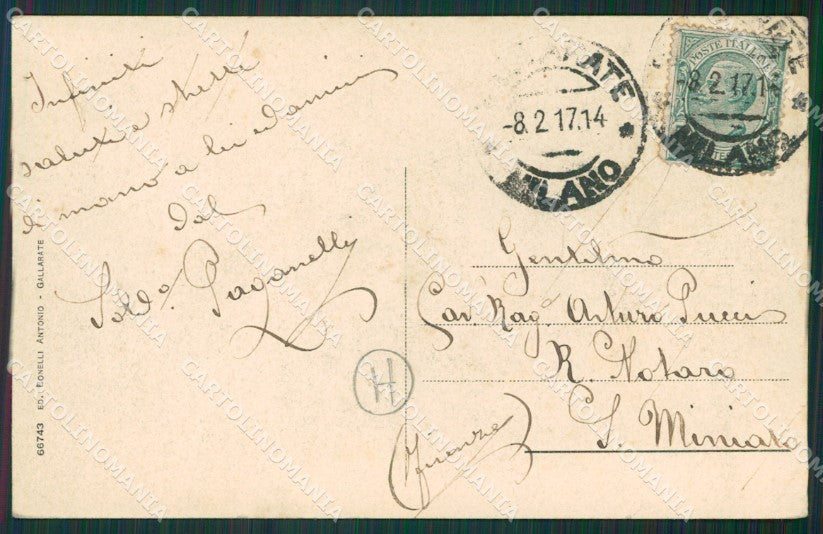 Infiniti
saluti e strette
di mano a lei ed amici
dal
Sold.o Paganelli
66743 ED. BONELLI ANTONIO - GALLARATE
GALLARATE
-8.2 17.14
MILANO
POSTE ITALIANE
-8.2 17.14
MILANO
H
Gentilmo
Cav. Rag. Arturo Pucci
R. Notaro
S. Miniato
(Firenze)
CARTOLINOMANIA